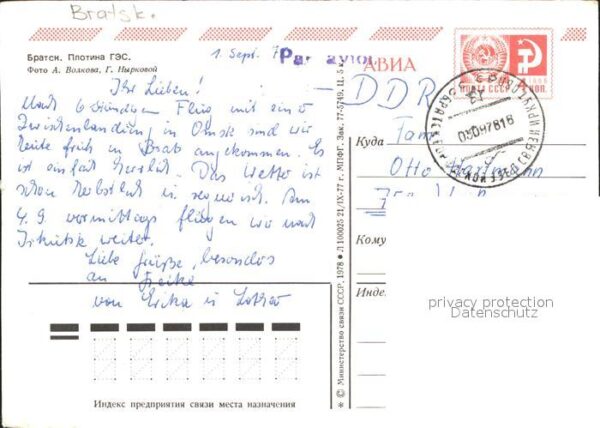 Bratsk.
Братск. Плотина ГЭС.
Фото А. Волкова, Г. Нырковой
1. Sept. 7
Par avion
АВИА
ПОЧТА СССР
КОП.
DDR
Ihr Lieben!
Nach 6 stündigem Flug mit einer
Zwischenlandung in Omsk sind wir
heute früh in Bratsk angekommen. Es
ist einfach herrlich. Das Wetter ist
schon herbstlich Am
4.9 vormittags fliegen wir nach
Irkutsk weiter.
Liebe Grüße, besonders
an Heike
von Erika u Lothar
Куда
Fam
Otto Hartmann
Кому
Индекс
privacy protection
Datenschutz
* © Министерство связи СССР, 1978 * Л 100025 21/IX-77 г. МПФГ. Зак. 77-5749. Ц. 5 к.
Индекс предприятия связи места назначения